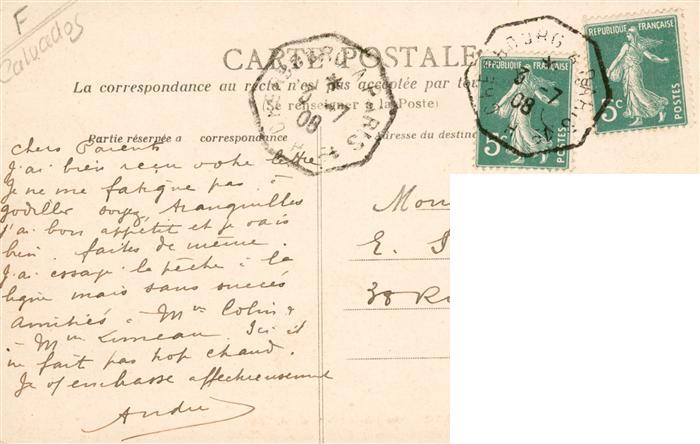 F
Calvados
CARTE POSTALE
La correspondance au recto n'est pas acceptée par tou
(Se renseigner à la Poste)
Partie réservée à correspondance
Adresse du destin
CHERBOURG A PARIS
8 -7
08
CHERBOURG A PARIS
8 -7
08
RÉPUBLIQUE FRANÇAISE
5c
POSTES
RÉPUBLIQUE FRANÇAISE
5c
POSTES
chers Parents
J'ai bien reçu votre lettre
Je ne me fatigue pas à
godiller soyez tranquilles
j'ai bon appetit et je vais
bien. faites de même.
J'ai essayé la pêche à la
ligne mais sans succès
Amitiés à Mme Colin &
à Mme Luneau. Ici il
ne fait pas trop chaud.
Je vs embrasse affectueusement
André
Mon
E.
38 Ru